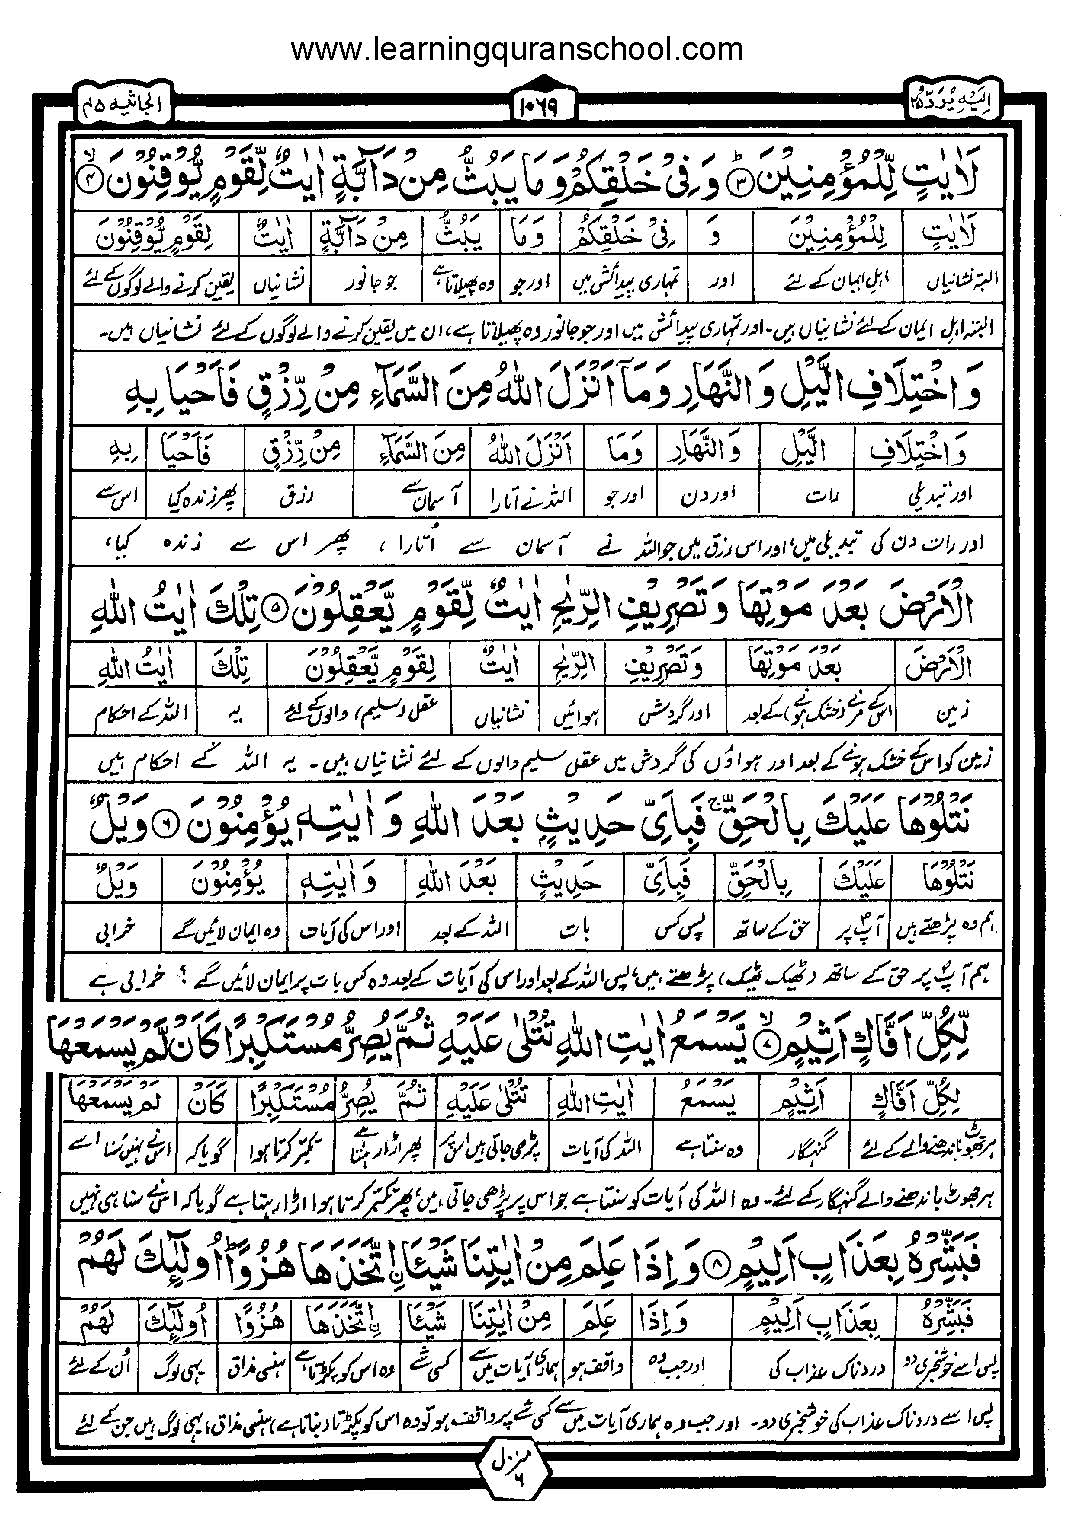 www.learningquranschool.com
اليه يرد ٢٥
١٠٦٩
الجاثية ٤٥
لَاٰيٰتٍ لِّلْمُؤْمِنِيْنَ ۝٣ وَفِيْ خَلْقِكُمْ وَمَا يَبُثُّ مِنْ دَآبَّةٍ اٰيٰتٌ لِّقَوْمٍ يُّوْقِنُوْنَ ۝٤
لَاٰيٰتٍ لِّلْمُؤْمِنِيْنَ وَ فِيْ خَلْقِكُمْ وَمَا يَبُثُّ مِنْ دَآبَّةٍ اٰيٰتٌ لِّقَوْمٍ يُّوْقِنُوْنَ
البتہ نشانیاں اہل ایمان کے لئے اور تمہاری پیدائش میں اور جو وہ پھیلاتا ہے جو جانور نشانیاں یقین کرنے والے لوگوں کے لئے
البتہ اہل ایمان کے لئے نشانیاں ہیں۔ اور تمہاری پیدائش میں اور جو جانور وہ پھیلاتا ہے، ان میں یقین کرنے والے لوگوں کے لئے نشانیاں ہیں۔
وَاخْتِلَافِ الَّيْلِ وَالنَّهَارِ وَمَآ اَنْزَلَ اللّٰهُ مِنَ السَّمَآءِ مِنْ رِّزْقٍ فَاَحْيَا بِهِ
وَاخْتِلَافِ الَّيْلِ وَالنَّهَارِ وَمَا اَنْزَلَ اللّٰهُ مِنَ السَّمَآءِ مِنْ رِّزْقٍ فَاَحْيَا بِهِ
اور تبدیلی رات اور دن اور جو اللہ نے اتارا آسمان سے رزق پھر زندہ کیا اس سے
اور رات دن کی تبدیلی میں، اور اس رزق میں جو اللہ نے آسمان سے اُتارا، پھر اس سے زندہ کیا،
الْاَرْضَ بَعْدَ مَوْتِهَا وَتَصْرِيْفِ الرِّيٰحِ اٰيٰتٌ لِّقَوْمٍ يَّعْقِلُوْنَ ۝٥ تِلْكَ اٰيٰتُ اللّٰهِ
الْاَرْضَ بَعْدَ مَوْتِهَا وَتَصْرِيْفِ الرِّيٰحِ اٰيٰتٌ لِّقَوْمٍ يَّعْقِلُوْنَ تِلْكَ اٰيٰتُ اللّٰهِ
زمین اس کے مرنے (خشک ہونے) کے بعد اور گردش ہوائیں نشانیاں عقل (سلیم) والوں کے لئے یہ اللہ کے احکام
زمین کو اس کے خشک ہونے کے بعد اور ہواؤں کی گردش میں عقل سلیم والوں کے لئے نشانیاں ہیں۔ یہ اللہ کے احکام ہیں
نَتْلُوْهَا عَلَيْكَ بِالْحَقِّ ۚ فَبِاَيِّ حَدِيْثٍۭ بَعْدَ اللّٰهِ وَاٰيٰتِهٖ يُؤْمِنُوْنَ ۝٦ وَيْلٌ
نَتْلُوْهَا عَلَيْكَ بِالْحَقِّ فَبِاَيِّ حَدِيْثٍ بَعْدَ اللّٰهِ وَاٰيٰتِهٖ يُؤْمِنُوْنَ وَيْلٌ
ہم وہ پڑھتے ہیں آپؐ پر حق کے ساتھ پس کس بات اللہ کے بعد اور اس کی آیات وہ ایمان لائیں گے خرابی
ہم آپؐ پر حق کے ساتھ (ٹھیک ٹھیک) پڑھتے ہیں، پس اللہ کے بعد اور اس کی آیات کے بعد وہ کس بات پر ایمان لائیں گے؟ خرابی ہے
لِّكُلِّ اَفَّاكٍ اَثِيْمٍ ۝٧ يَّسْمَعُ اٰيٰتِ اللّٰهِ تُتْلٰى عَلَيْهِ ثُمَّ يُصِرُّ مُسْتَكْبِرًا كَاَنْ لَّمْ يَسْمَعْهَا
لِكُلِّ اَفَّاكٍ اَثِيْمٍ يَّسْمَعُ اٰيٰتِ اللّٰهِ تُتْلٰى عَلَيْهِ ثُمَّ يُصِرُّ مُسْتَكْبِرًا كَاَنْ لَّمْ يَسْمَعْهَا
ہر جھوٹ باندھنے والے کے لئے گنہگار وہ سنتا ہے اللہ کی آیات پڑھی جاتی ہیں اس پر پھر اڑا رہتا ہے تکبر کرتا ہوا گویا کہ اس نے نہیں سُنا اسے
ہر جھوٹ باندھنے والے گنہگار کے لئے۔ وہ اللہ کی آیات کو سنتا ہے جو اس پر پڑھی جاتی ہیں، پھر تکبّر کرتا ہوا اڑا رہتا ہے گویا کہ اس نے سنا ہی نہیں
فَبَشِّرْهُ بِعَذَابٍ اَلِيْمٍ ۝٨ وَاِذَا عَلِمَ مِنْ اٰيٰتِنَا شَيْـًٔا اتَّخَذَهَا هُزُوًا ۭ اُولٰٓئِكَ لَهُمْ
فَبَشِّرْهُ بِعَذَابٍ اَلِيْمٍ وَاِذَا عَلِمَ مِنْ اٰيٰتِنَا شَيْـًٔا اتَّخَذَهَا هُزُوًا اُولٰٓئِكَ لَهُمْ
پس اسے خوشخبری دو دردناک عذاب کی اور جب وہ واقف ہو ہماری آیات میں سے کسی شے وہ اس کو پکڑتا ہے ہنسی مذاق یہی لوگ اُن کے لئے
پس اسے دردناک عذاب کی خوشخبری دو۔ اور جب وہ ہماری آیات میں سے کسی شے پر واقف ہو تو وہ اس کو پکڑتا (بناتا ہے) ہنسی مذاق، یہی لوگ ہیں جن کے لئے
منزل ٦